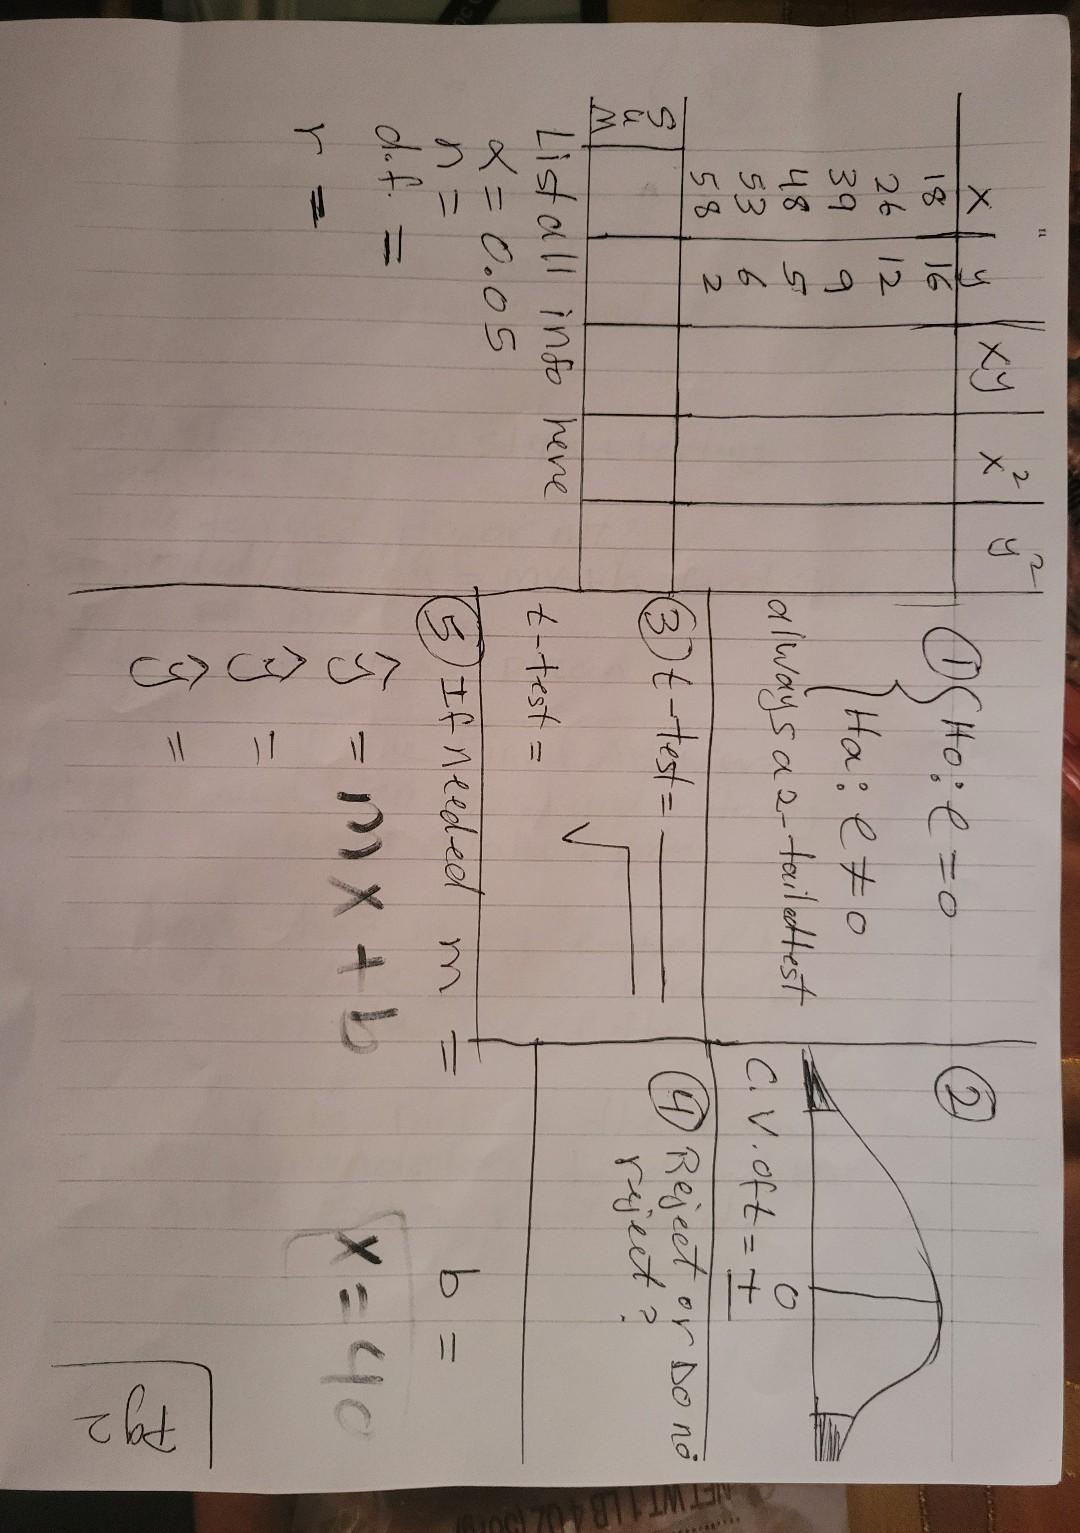 x y xy x² y²
18 16
26 12
39 9
48 5
53 6
58 2
Sum
List all info here
α = 0.05
n =
d.f. =
r =
① { Ho: ρ = 0
Ha: ρ ≠ 0
always a 2-tailed test
②
0
C.V. of t = ±
③ t-test = 
√
t-test =
④ Reject or Do no
reject?
⑤ If needed m = b =
ŷ = mx + b x = 40
ŷ =
ŷ =
Pg 2
NET WT 1 LB 4 OZ